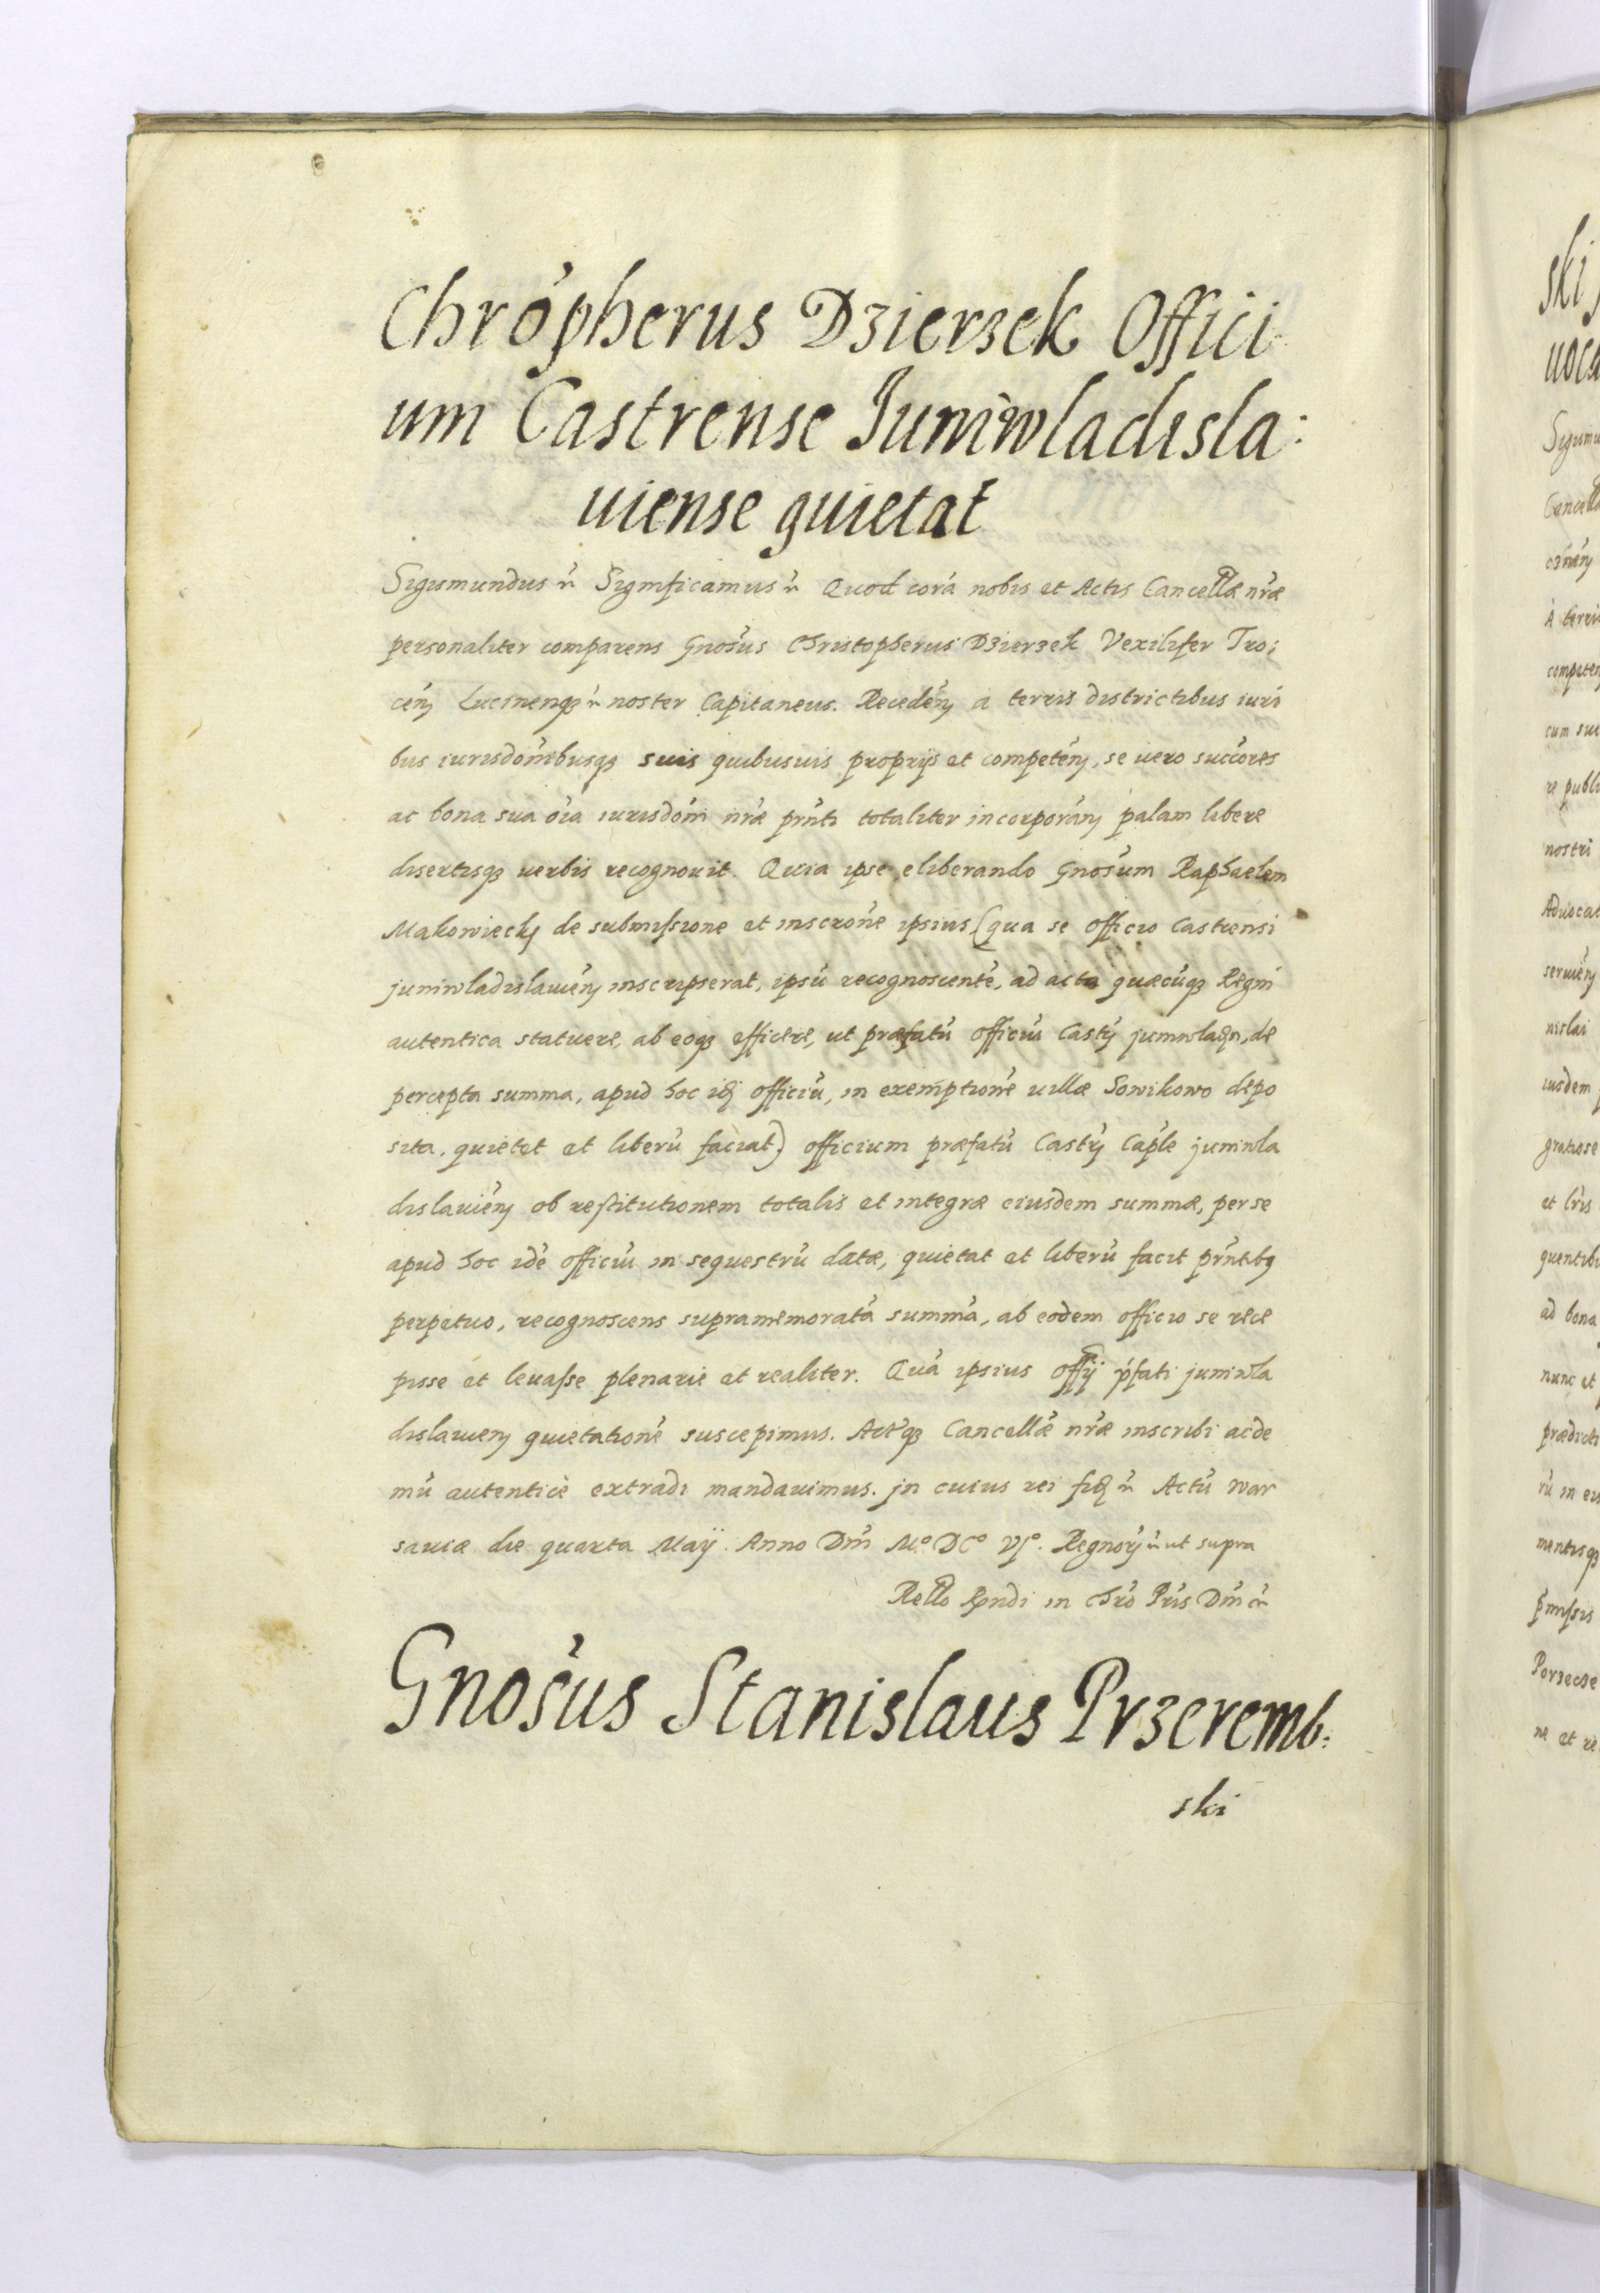 Chrõpherus Dzierzek Offici
um Castrense Juniwladisla:
uiense quietat
Sigismundus Significamus Quod corã nobis et Actis Cancellæ nræ
personaliter comparens Gnosus Christopherus Dzierzek Vexilifer Tro:
cen noster Capitaneus. Receden a terris districtibus iuri
bus iurisdonibusq suis quibusuis proprijs et competen, se uero succores
ac bona sua oia iurisdoni nræ prnti totaliter incorporan palam libere
disertisq uerbis recognouit. Quia ipse eliberando Gnosum Raphaelem
Makowiecky de submissione et inscrone ipsius (qua se officio Castrensi
juniwladislauien inscripserat, ipsũ recognoscentẽ, ad acta quæcũq Regni
autentica statuere, ab eoq efficere, ut præfatũ officiũ Castr juniwladn, de
percepta summa, apud hoc id officiũ, in exemptionẽ uillæ Sowikowo depo
sita, quietet et liberũ faciat) officium præfatũ Castr Caple juniwla
dislauien ob restitutionem totalis et integræ eiusdem summæ, per se
apud hoc idẽ officiũ in sequestrũ datæ, quietat et liberũ facit prntibq
perpetuo, recognoscens supramemoratã summã, ab eodem officio se rece
pisse et leuasse plenarie et realiter. Quã ipsius offij pfati juniwla
dislauien quietationẽ suscepimus. Actisq Cancellæ nræ inscribi ac de
mũ autenticè extradi mandauimus. jn cuius rei fid Actũ War
sauiæ die quarta Maij. Anno Dni Mº DCº VJº. Regnor ut supra
Rello Rndi in Chrõ Pris Dni
Gnosus Stanislaus Przeremb:
ski